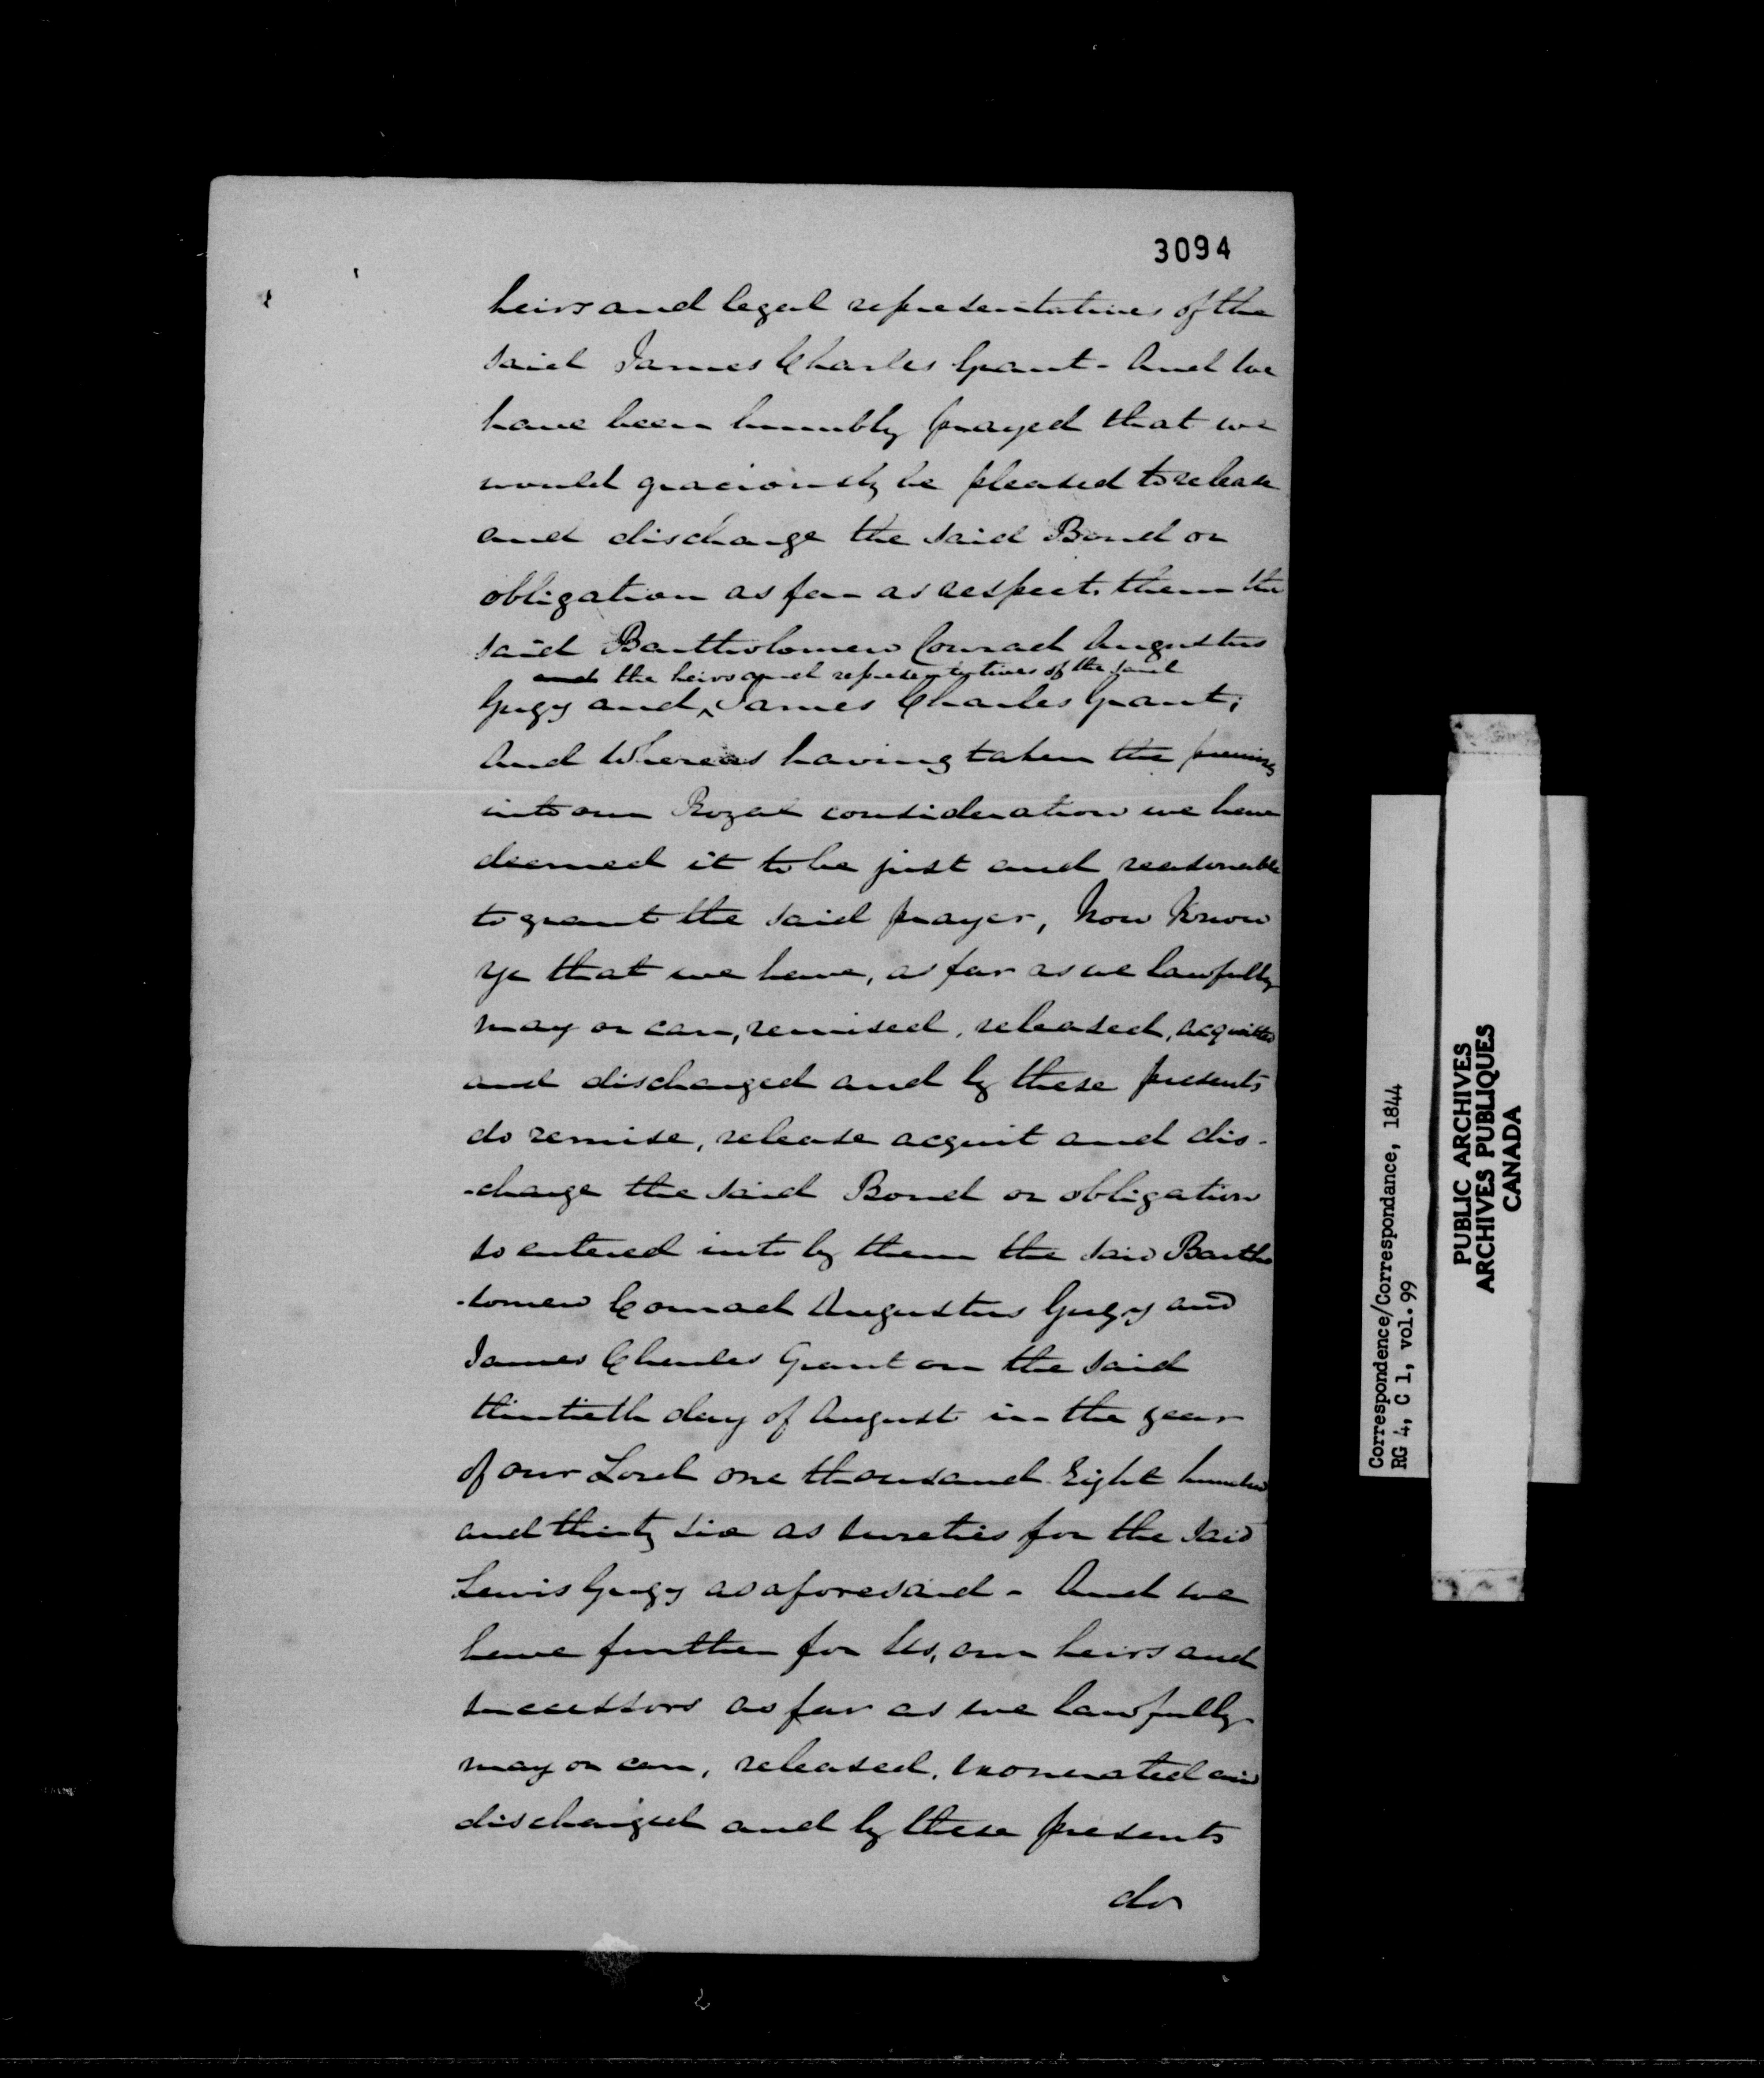 3094
heirs and legal representatives of the
said James Charles Grant - And we
have been humbly prayed that we
would graciously be pleased to release
and discharge the said Bond or
obligation as far as respects them the
said Bartholomew Conrad Augustus
and the heirs and representatives of the said
Gugy and ^ James Charles Grant;
And Whereas having taken the premises
into our Royal consideration we have
deemed it to be just and reasonable
to grant the said prayer, Now Know
Ye that we have, as far as we lawfully
may or can, remised, released, acquitted
and discharged and by these presents
do remise, release acquit and dis-
-charge the said Bond or obligation
so entered into by them the said Bartho
-lomew Conrad Augustus Gugy and
James Charles Grant on the said
thirtieth day of August in the year
of our Lord one thousand Eight hundred
and thirty six as sureties for the said
Lewis Gugy as aforesaid - And we
have further for Us, our heirs and
successors as far as we lawfully
may or can, released, exonerated and
discharged and by these presents
do
Correspondence/Correspondance, 1844
RG 4, C 1, vol.99
PUBLIC ARCHIVES
ARCHIVES PUBLIQUES
CANADA